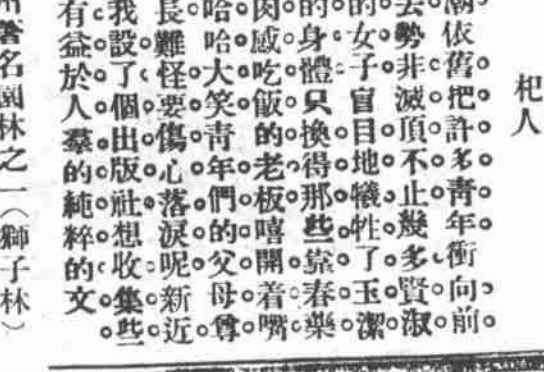 杞人
潮依舊把許多青年衝向前
去勢非滅頂不止幾多賢淑
的女子盲目地犧牲了玉潔
的身體只換得那些靠春藥
肉感吃飯的老板嘻開着嘴
哈哈大笑青年們的父母尊
長難怪要傷心落淚呢新近
我設了個出版社想收集些
有益於人羣的純粹的文
著名園林之一（獅子林）